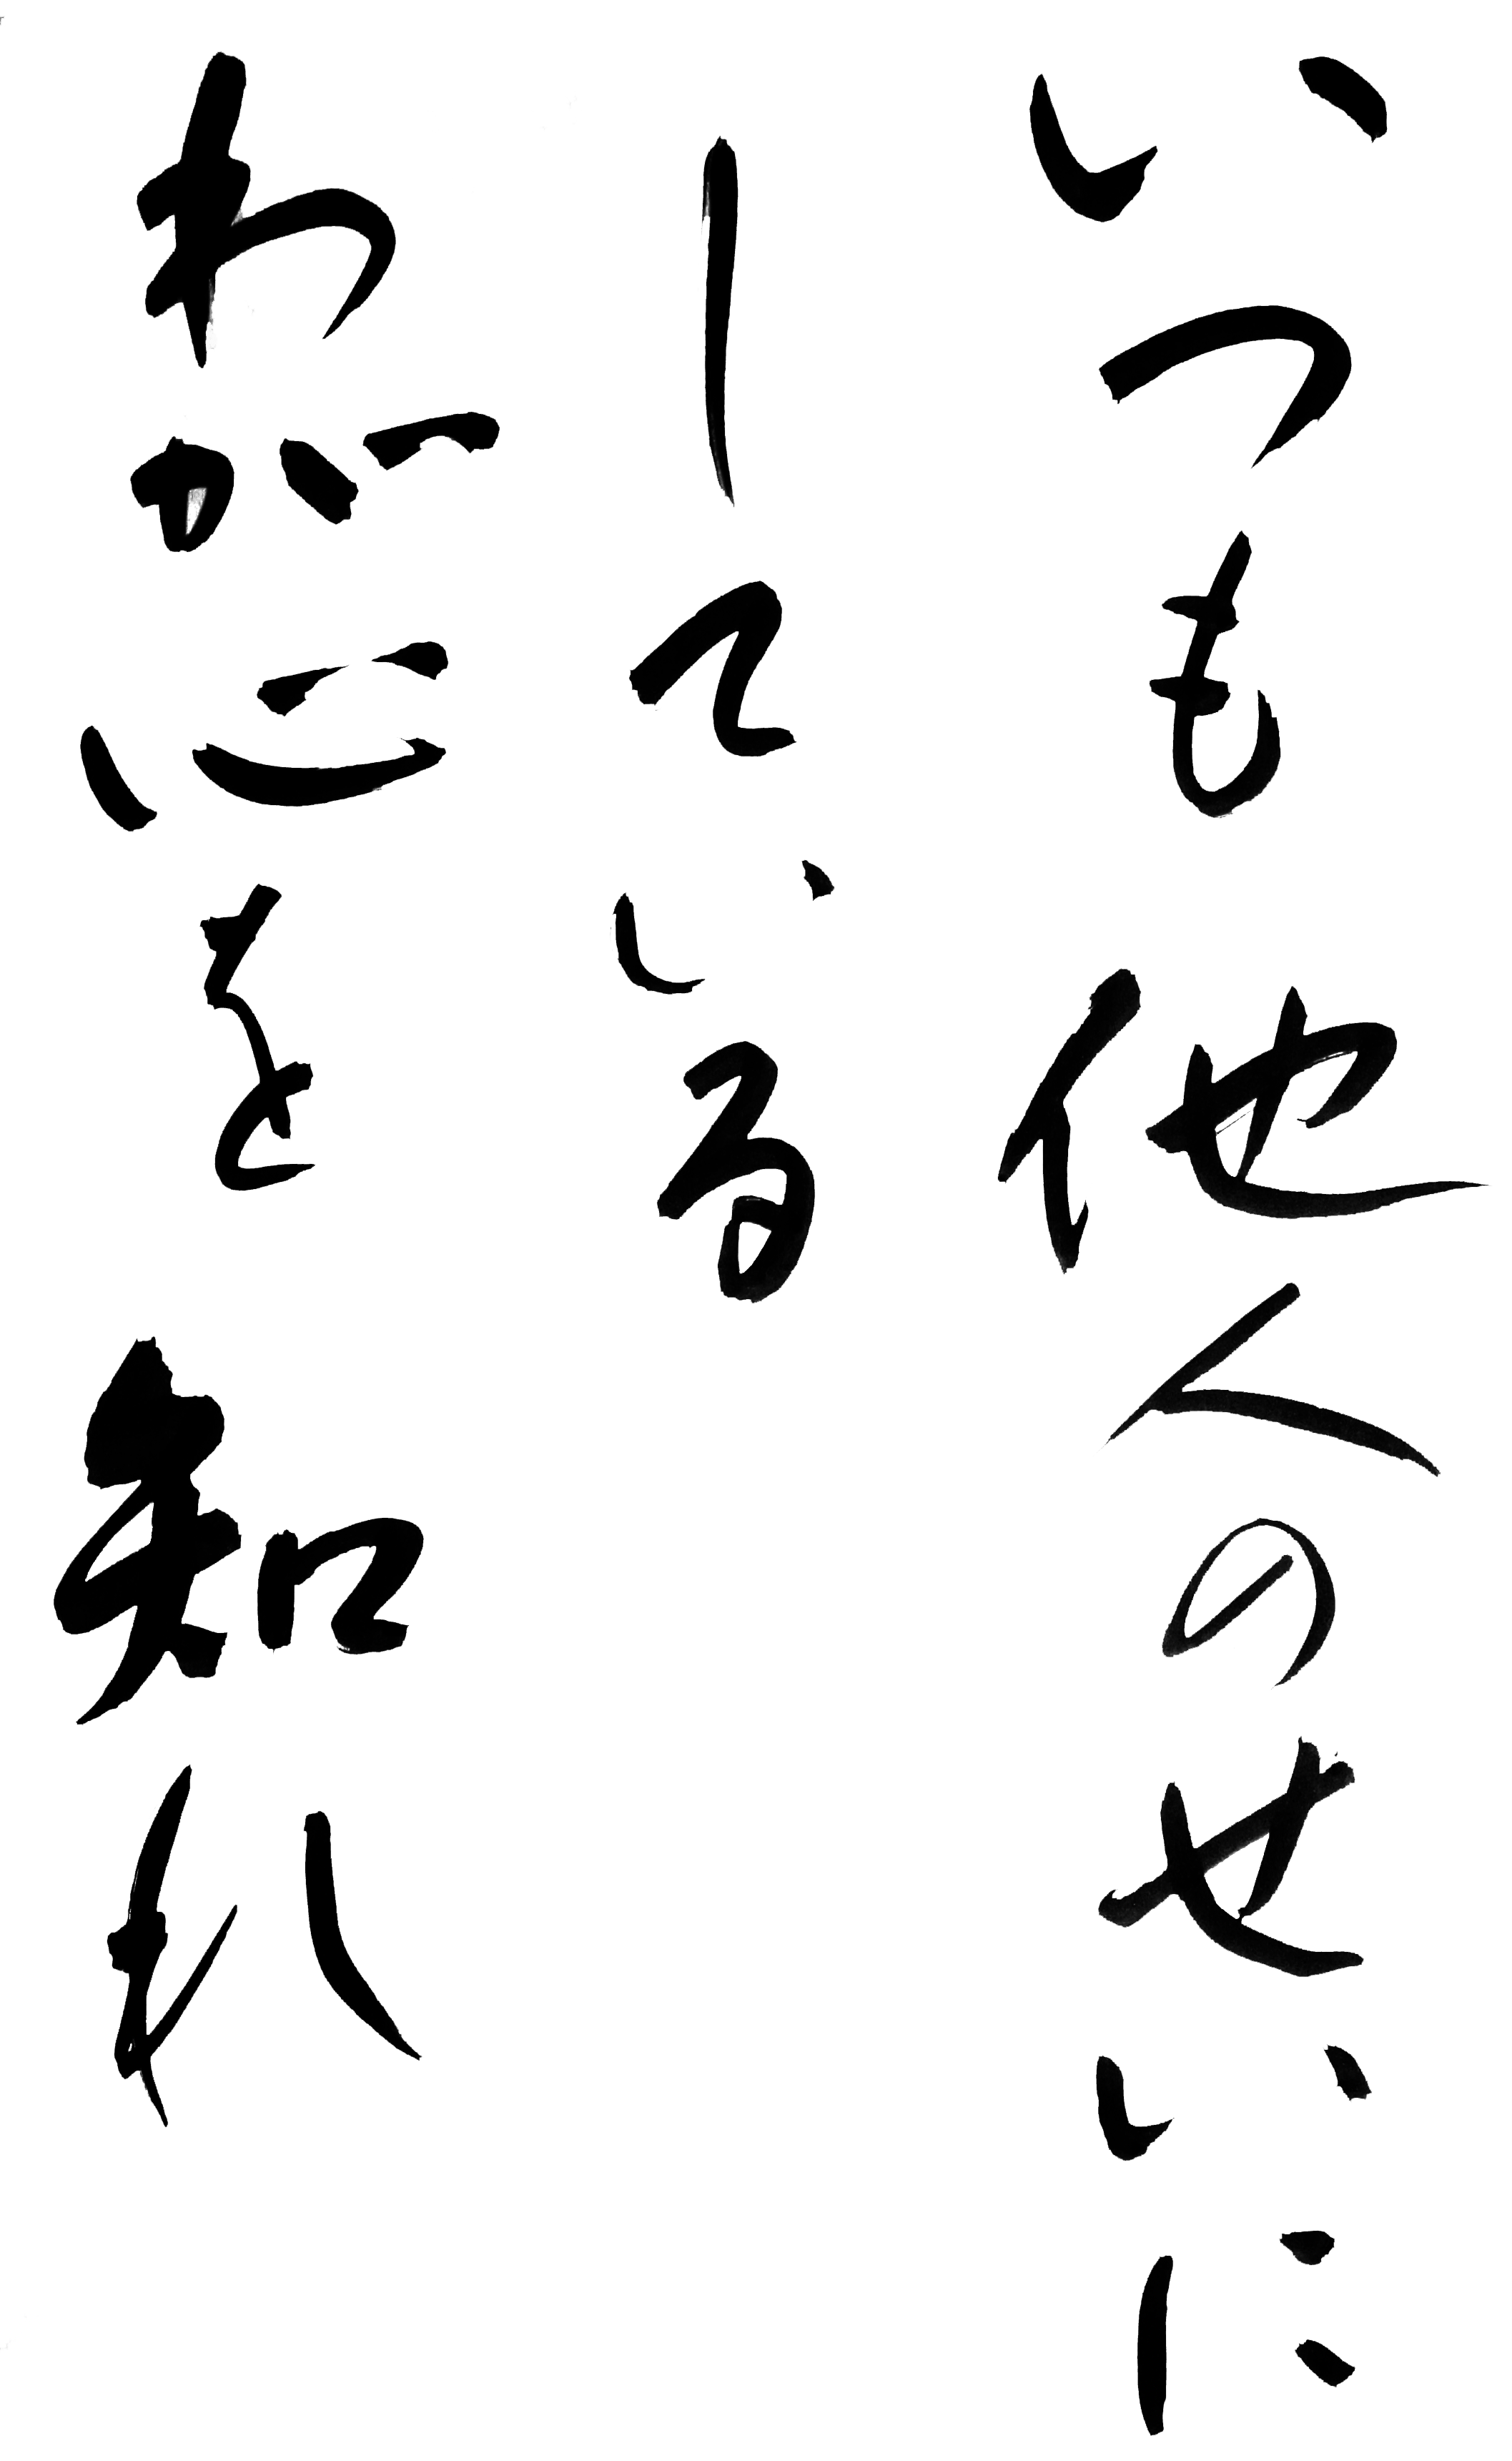 いつも他人のせいに
している
わが心を知れ